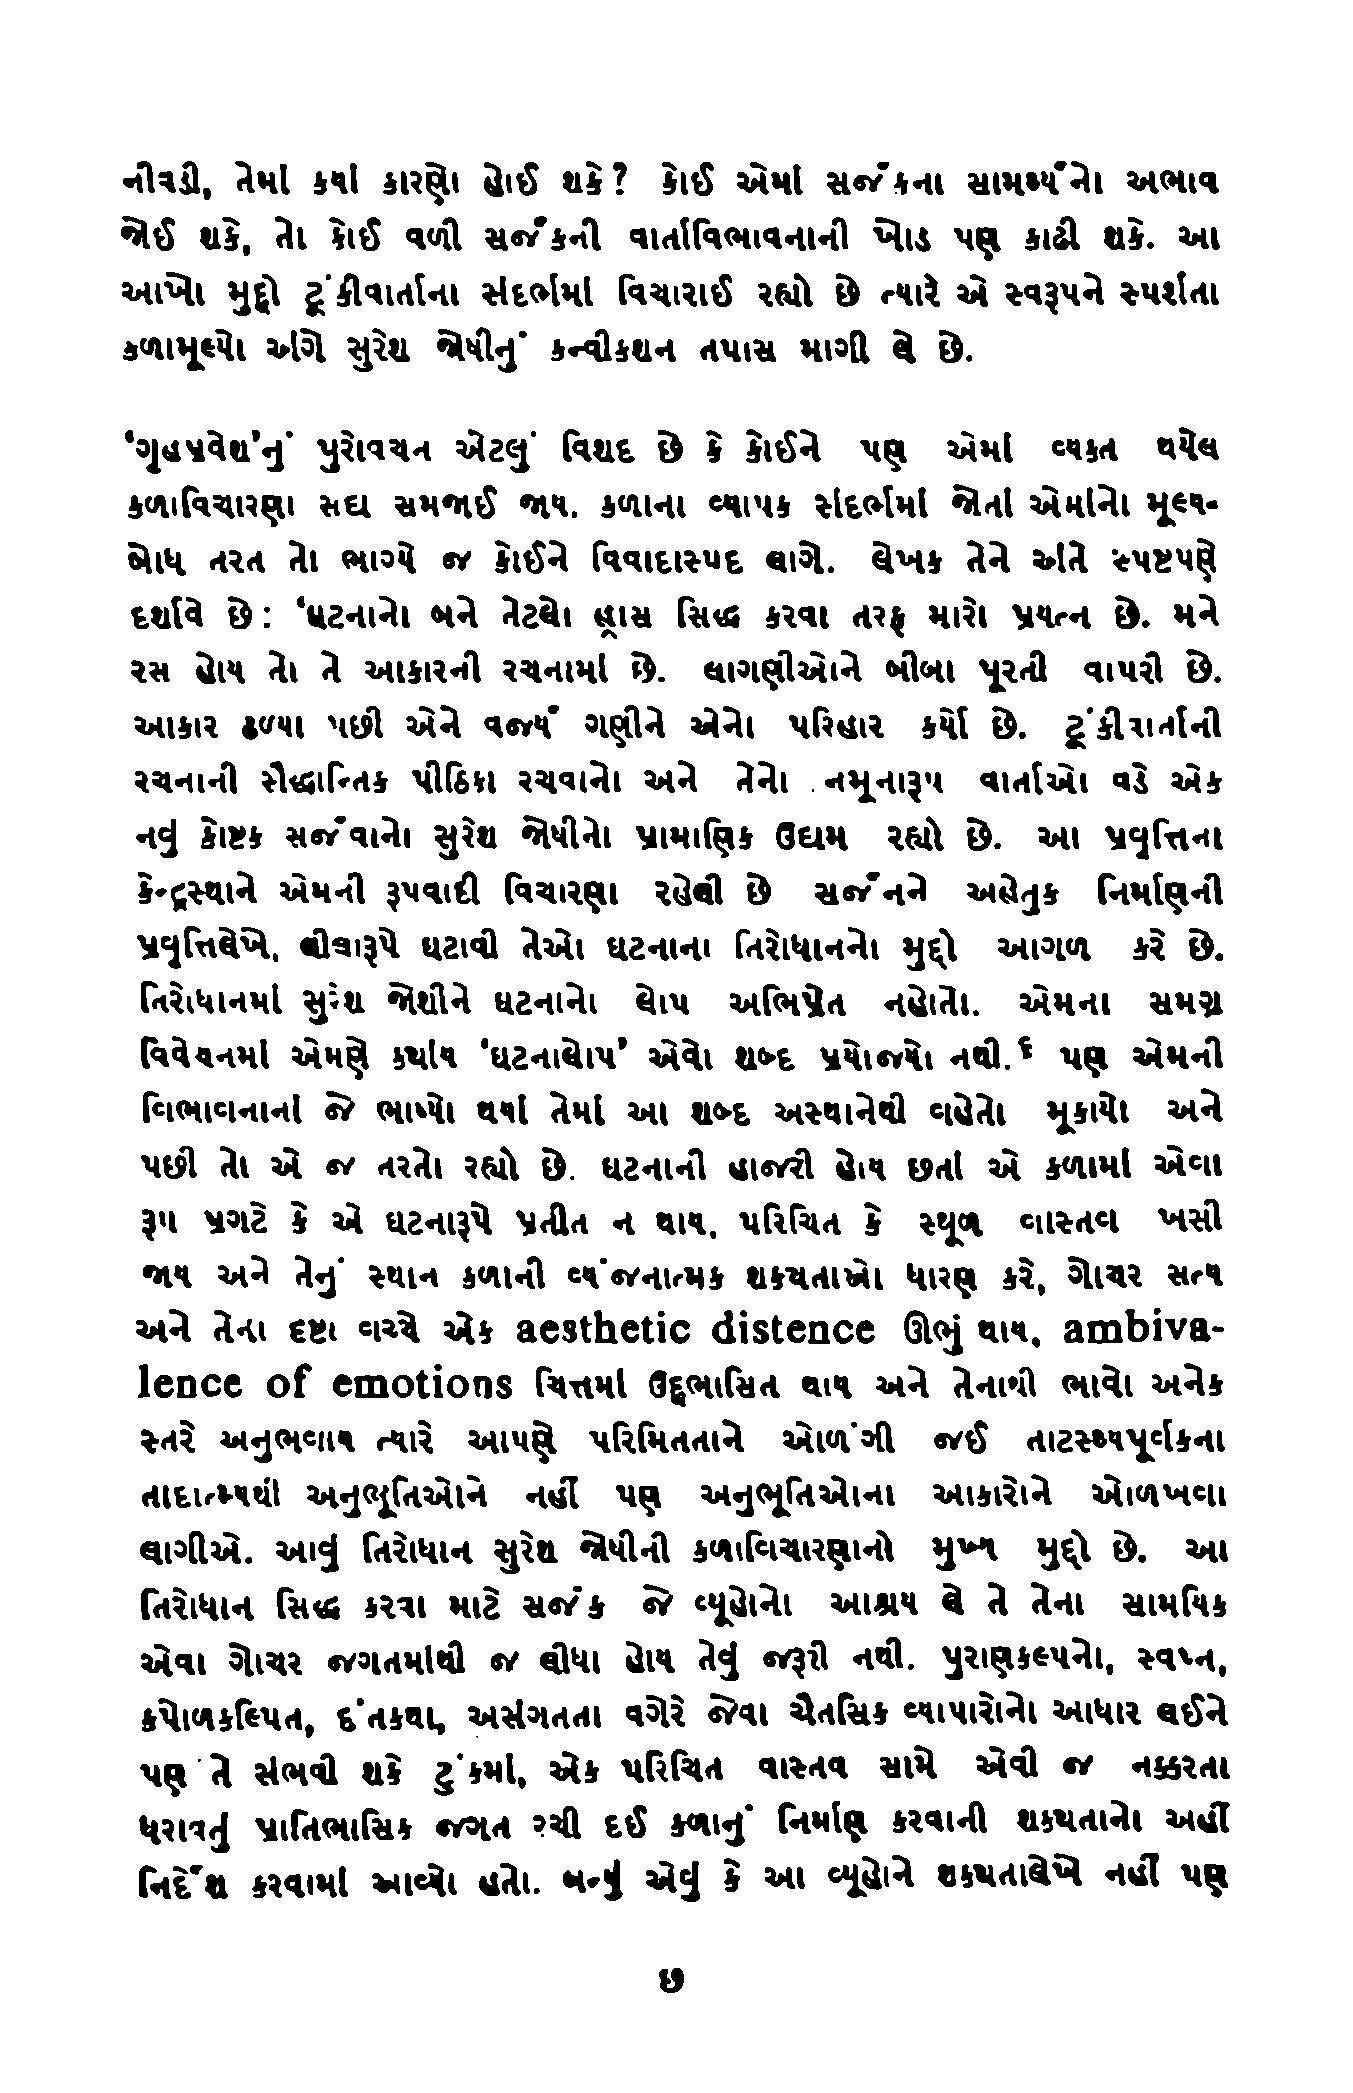 નીવડી, તેમાં કયાં કારણો હોઈ શકે? કોઈ એમાં સર્જકના સામર્થ્યનો અભાવ
જોઈ શકે, તો કોઈ વળી સર્જકની વાર્તાવિભાવનાની ખોડ પણ કાઢી શકે. આ
આખો મુદ્દો ટૂંકીવાર્તાના સંદર્ભમાં વિચારાઈ રહ્યો છે ત્યારે એ સ્વરૂપને સ્પર્શતા
કળામૂલ્યો અંગે સુરેશ જોષીનું કન્વીકશન તપાસ માગી લે છે.
‘ગૃહપ્રવેશ’નું પુરોવચન એટલું વિશદ છે કે કોઈને પણ એમાં વ્યક્ત થયેલ
કળાવિચારણા સદ્ય સમજાઈ જાય. કળાના વ્યાપક સંદર્ભમાં જોતાં એમાંનો મૂલ્ય-
બોધ તરત તો ભાગ્યે જ કોઈને વિવાદાસ્પદ લાગે. લેખક તેને અંતે સ્પષ્ટપણે
દર્શાવે છે : ‘ઘટનાનો બને તેટલો હ્રાસ સિદ્ધ કરવા તરફ મારો પ્રયત્ન છે. મને
રસ હોય તો તે આકારની રચનામાં છે. લાગણીઓને બીબા પૂરતી વાપરી છે.
આકાર ઢળ્યા પછી એને વર્જ્ય ગણીને એનો પરિહાર કર્યો છે. ટૂંકીવાર્તાની
રચનાની સૈદ્ધાન્તિક પીઠિકા રચવાનો અને તેનો નમૂનારૂપ વાર્તાઓ વડે એક
નવું કોષ્ટક સર્જવાનો સુરેશ જોષીનો પ્રામાણિક ઉદ્યમ રહ્યો છે. આ પ્રવૃત્તિના
કેન્દ્રસ્થાને એમની રૂપવાદી વિચારણા રહેલી છે સર્જનને અહેતુક નિર્માણની
પ્રવૃત્તિલેખે, લીલારૂપે ઘટાવી તેઓ ઘટનાના તિરોધાનનો મુદ્દો આગળ કરે છે.
તિરોધાનમાં સુરેશ જોશીને ઘટનાનો લોપ અભિપ્રેત નહોતો. એમના સમગ્ર
વિવેચનમાં એમણે ક્યાંય ‘ઘટનાલોપ’ એવો શબ્દ પ્રયોજ્યો નથી.૬ પણ એમની
વિભાવનાનાં જે ભાષ્યો થયાં તેમાં આ શબ્દ અસ્થાનેથી વહેતો મૂકાયો અને
પછી તો એ જ તરતો રહ્યો છે. ઘટનાની હાજરી હોય છતાં એ કળામાં એવા
રૂપ પ્રગટે કે એ ઘટનારૂપે પ્રતીત ન થાય, પરિચિત કે સ્થૂળ વાસ્તવ ખસી
જાય અને તેનું સ્થાન કળાની વ્યંજનાત્મક શક્યતાઓ ધારણ કરે, ગોચર સત્ય
અને તેના દષ્ટા વચ્ચે એક aesthetic distence ઊભું થાય, ambiva-
lence of emotions ચિત્તમાં ઉદ્દભાસિત થાય અને તેનાથી ભાવો અનેક
સ્તરે અનુભવાય ત્યારે આપણે પરિમિતતાને ઓળંગી જઈ તાટસ્થ્યપૂર્વકના
તાદાત્મ્યથી અનુભૂતિઓને નહીં પણ અનુભૂતિઓના આકારોને ઓળખવા
લાગીએ. આવું તિરોધાન સુરેશ જોષીની કળાવિચારણાનો મુખ્ય મુદ્દો છે. આ
તિરોધાન સિદ્ધ કરવા માટે સર્જક જે વ્યૂહોનો આશ્રય લે તે તેના સામયિક
એવા ગોચર જગતમાંથી જ લીધા હોય તેવું જરૂરી નથી. પુરાણકલ્પનો, સ્વપ્ન,
કપોળકલ્પિત, દંતકથા, અસંગતતા વગેરે જેવા ચૈતસિક વ્યાપારોનો આધાર લઈને
પણ તે સંભવી શકે ટુંકમાં, એક પરિચિત વાસ્તવ સામે એવી જ નક્કરતા
ધરાવતું પ્રાતિભાસિક જગત રચી દઈ કળાનું નિર્માણ કરવાની શક્યતાનો અહીં
નિર્દેશ કરવામાં આવ્યો હતો. બન્યું એવું કે આ વ્યૂહોને શક્યતાલેખે નહીં પણ
છ